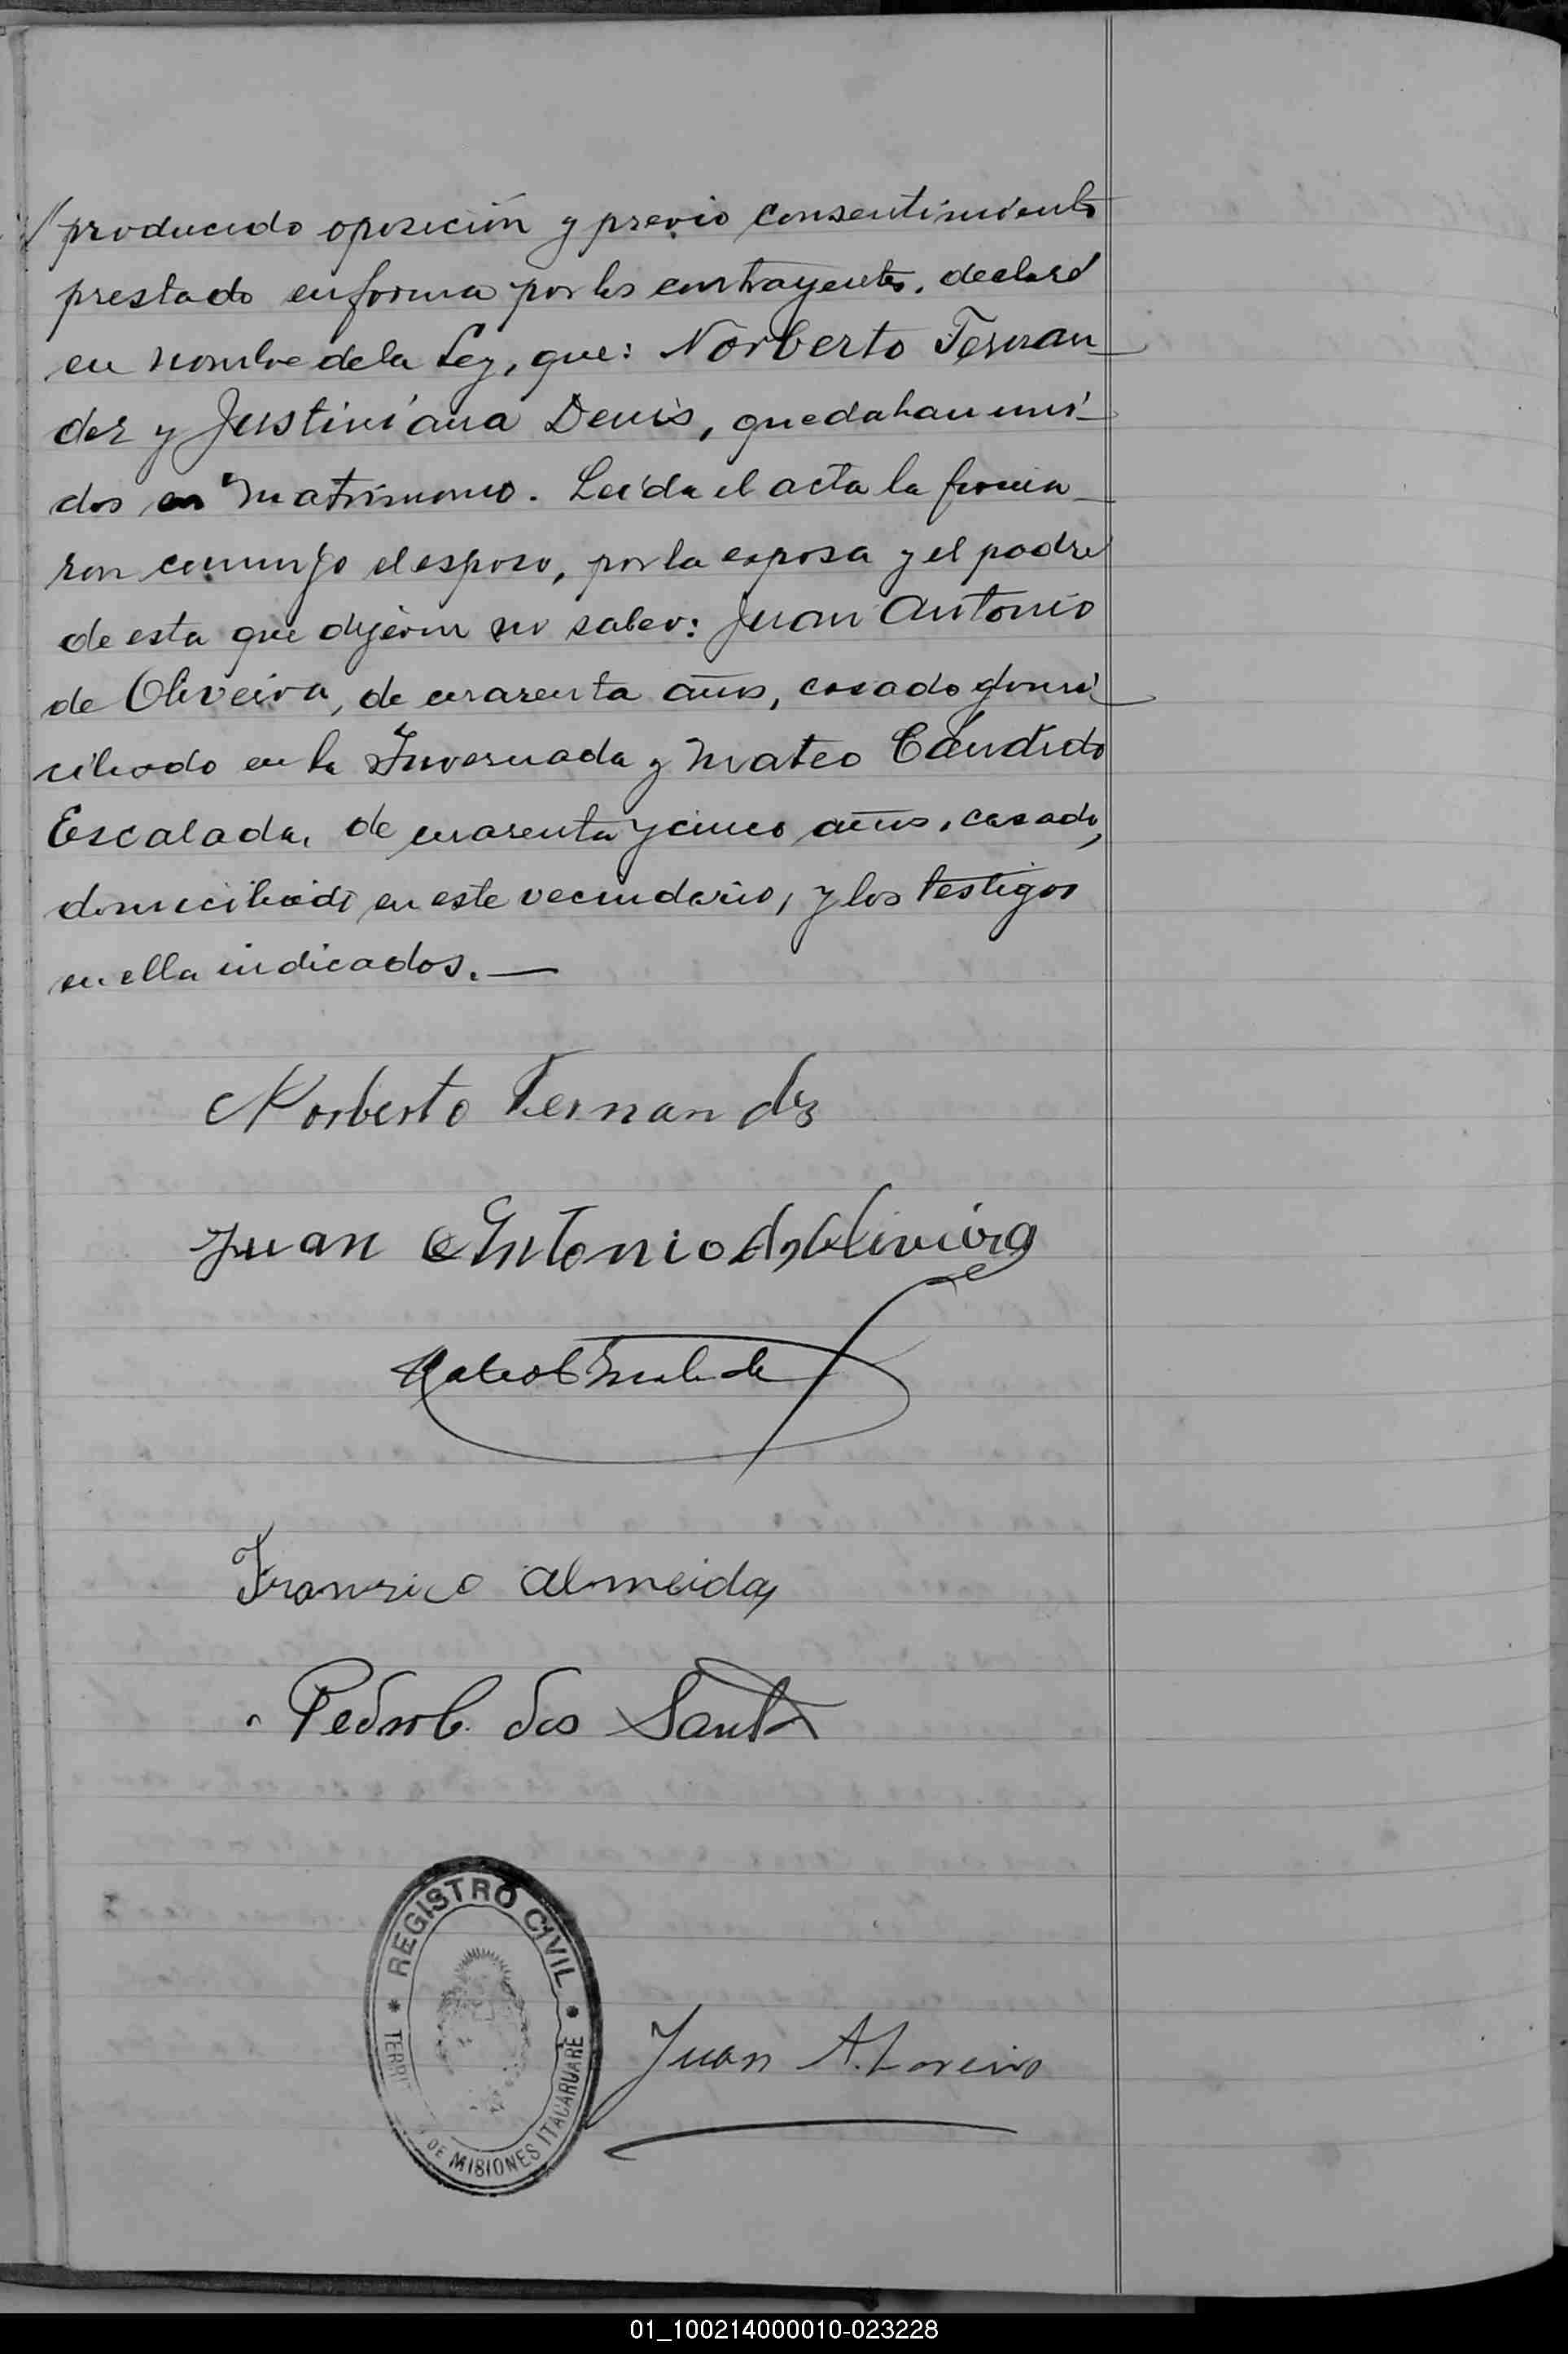 producido oposición y previo consentimiento
prestado en forma por los contrayentes, declaré
en nombre de la Ley, que: Norberto Fernan
dez y Justiniana Denis, quedaban uni
dos en matrimonio. Leída el acta la firma
ron conmigo el esposo, por la esposa y el padre
de esta que dijeron no saber: Juan Antonio
de Oliveira, de cuarenta años, casado domi
ciliado en la Invernada y Mateo Cándido
Escalada, de cuarenta y cinco años, casado,
domiciliado en este vecindario, y los testigos
en ella indicados.—
Norberto Fernandez
Juan Antonio de Oliveira
Mateo C Escalada
Francisco Almeida
Pedro C. dos Santos
REGISTRO CIVIL
TERRI DE MISIONES ITACARUARE
Juan A.
01_100214000010-023228